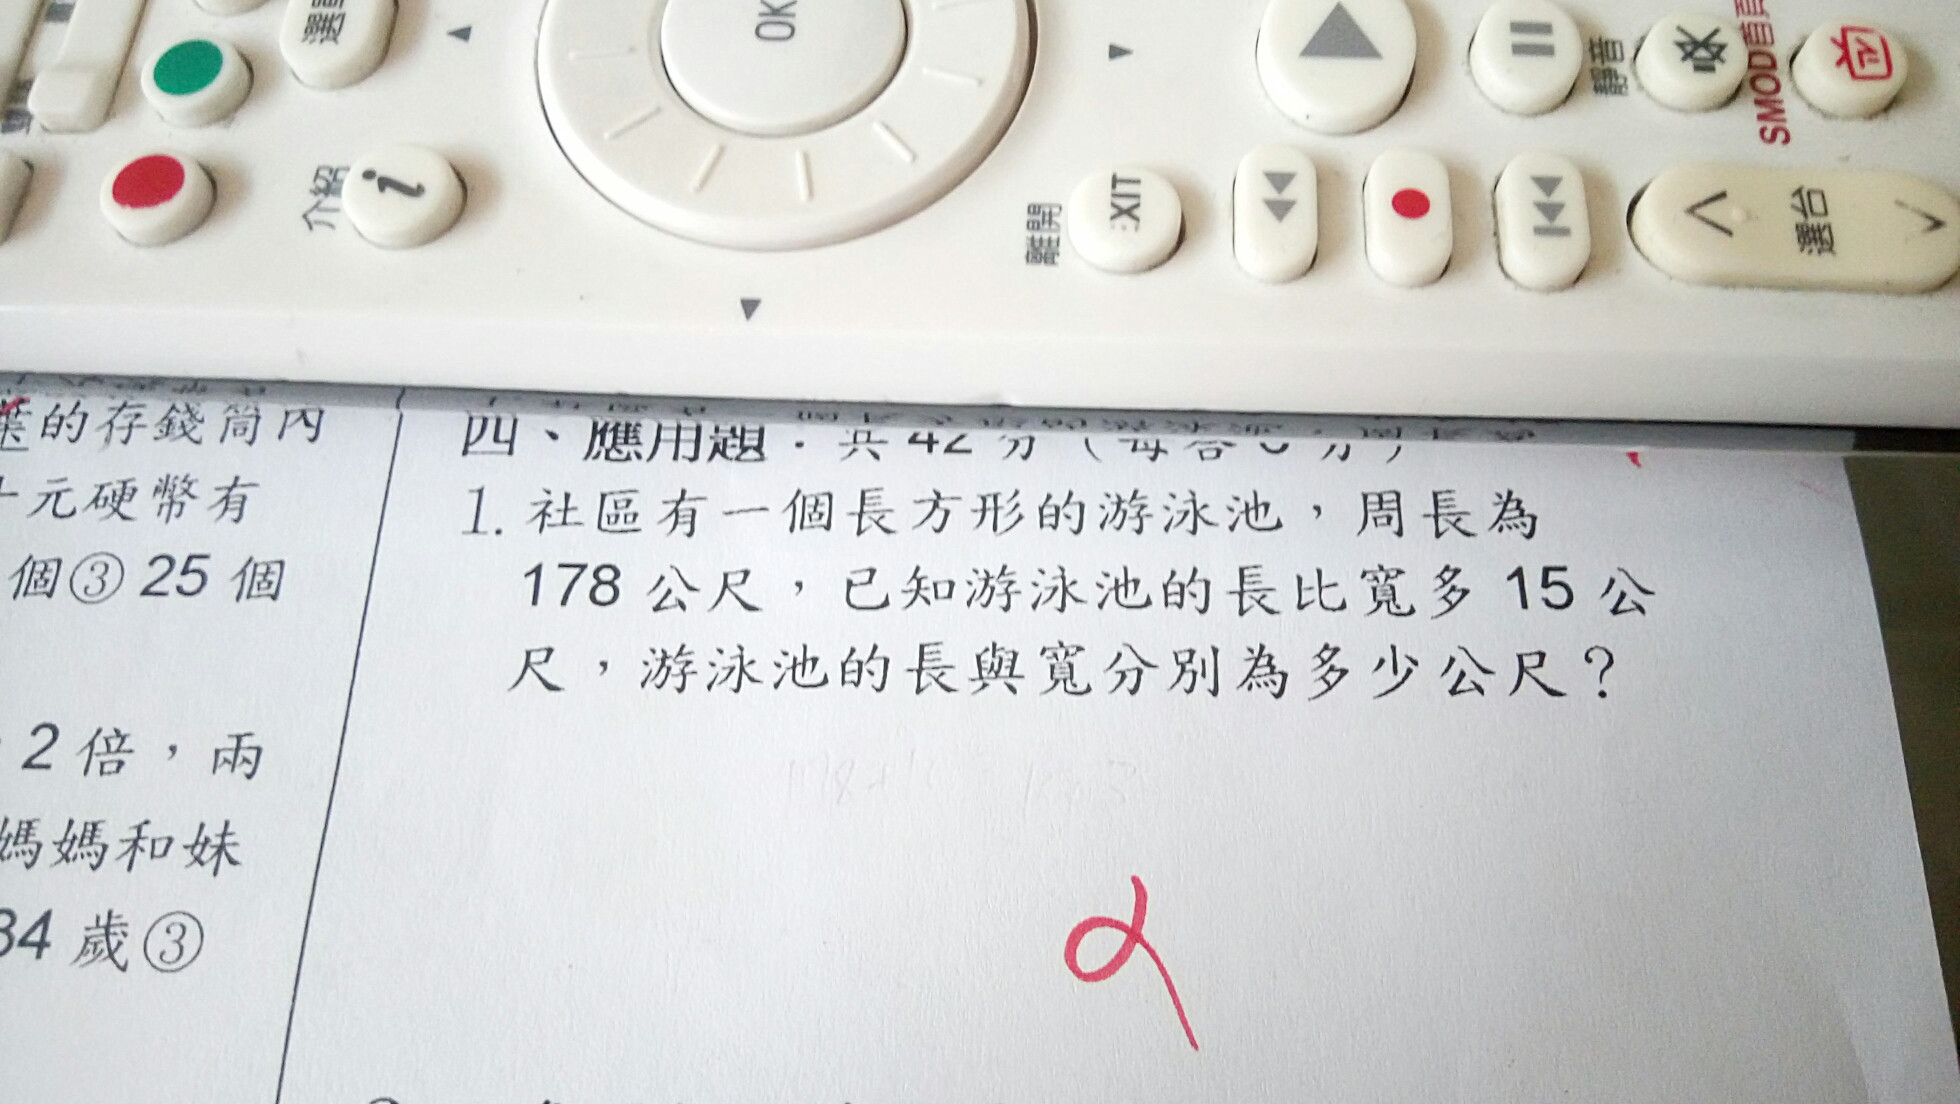 OK
介紹
i
離開
EXIT
靜音
SMOD首頁
TV
選台
的存錢筒內
元硬幣有
個③ 25 個
2 倍，兩
媽媽和妹
34 歲③
四、應用題：共 42 分（每答 6 分）
1. 社區有一個長方形的游泳池，周長為
178 公尺，已知游泳池的長比寬多 15 公
尺，游泳池的長與寬分別為多少公尺？